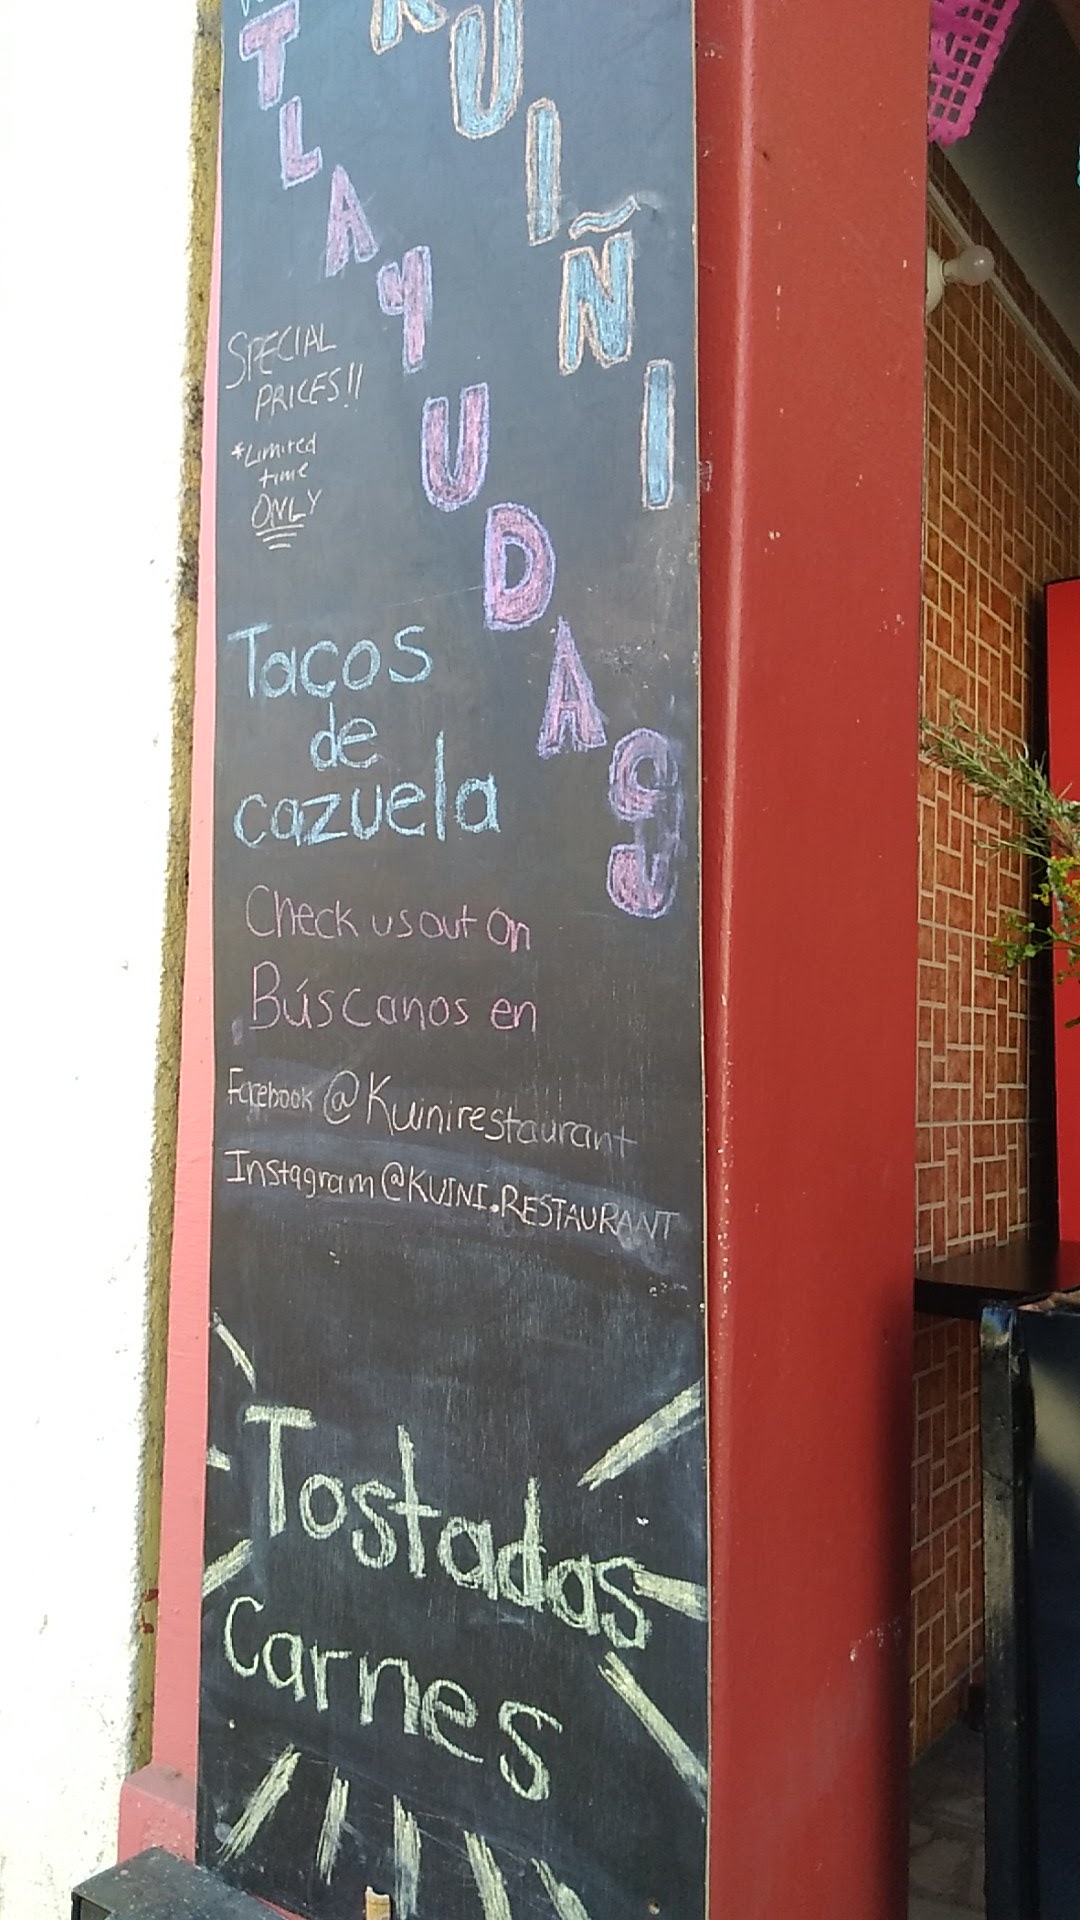 KUIÑI
TLAYUDAS
SPECIAL
PRICES!!
*Limited
time
ONLY
Tacos
de
cazuela
Check us out on
Búscanos en
Facebook @Kuinirestaurant
Instagram @KUINI.RESTAURANT
Tostadas
Carnes